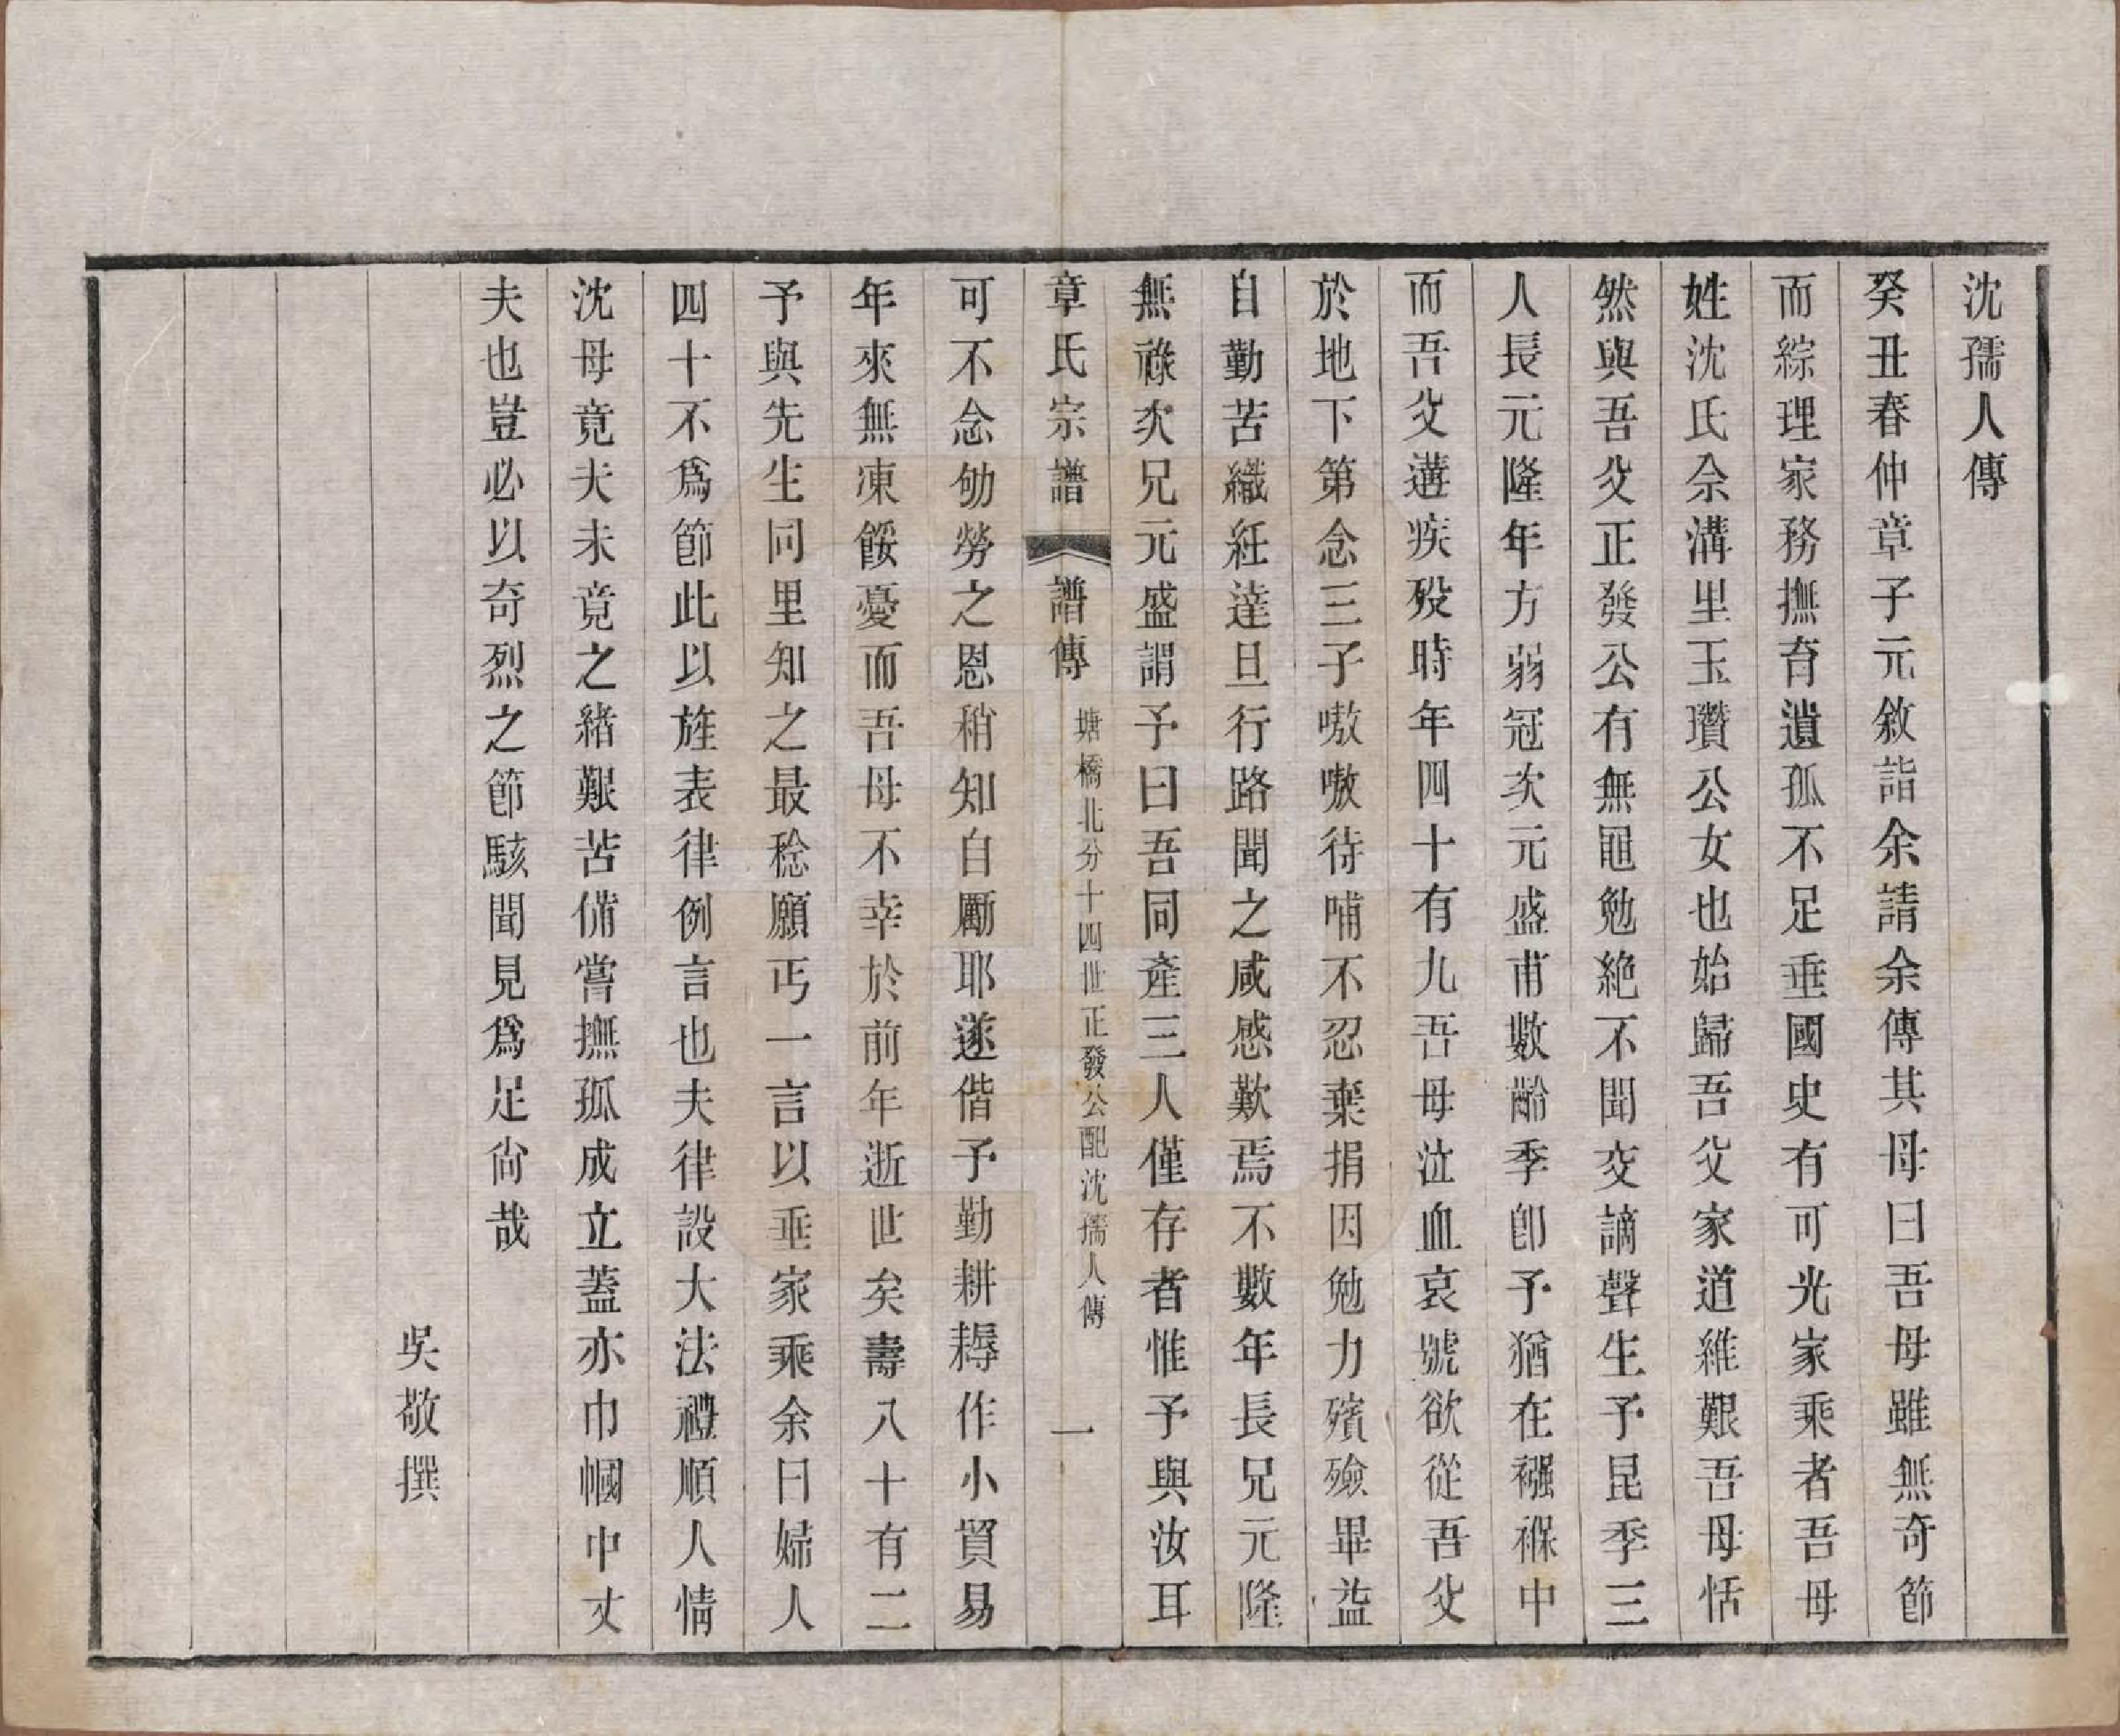 沈孺人傳
癸丑春仲章子元敘詣余請余傳其母曰吾母雖無奇節
而綜理家務撫育遺孤不足垂國史有可光家乘者吾母
姓沈氏佘溝里玉瓚公女也始歸吾父家道維艱吾母恬
然與吾父正發公有無黽勉絕不聞交謫聲生予昆季三
人長元隆年方弱冠次元盛甫數齡季卽予猶在襁褓中
而吾父遘疾歿時年四十有九吾母泣血哀號欲從吾父
於地下第念三子嗷嗷待哺不忍棄捐因勉力殯殮畢益
自勤苦織紝達旦行路聞之咸感歎焉不數年長兄元隆
無祿次兄元盛謂予曰吾同產三人僅存者惟予與汝耳
章氏宗譜 譜傳 塘橋北分十四世正發公配沈孺人傳 一
可不念劬勞之恩稍知自勵耶遂偕予勤耕耨作小貿易
年來無凍餒憂而吾母不幸於前年逝世矣壽八十有二
予與先生同里知之最稔願丐一言以垂家乘余曰婦人
四十不爲節此以旌表律例言也夫律設大法禮順人情
沈母竟夫未竟之緒艱苦備嘗撫孤成立蓋亦巾幗中丈
夫也豈必以奇烈之節駭聞見爲足尙哉
吳敬撰